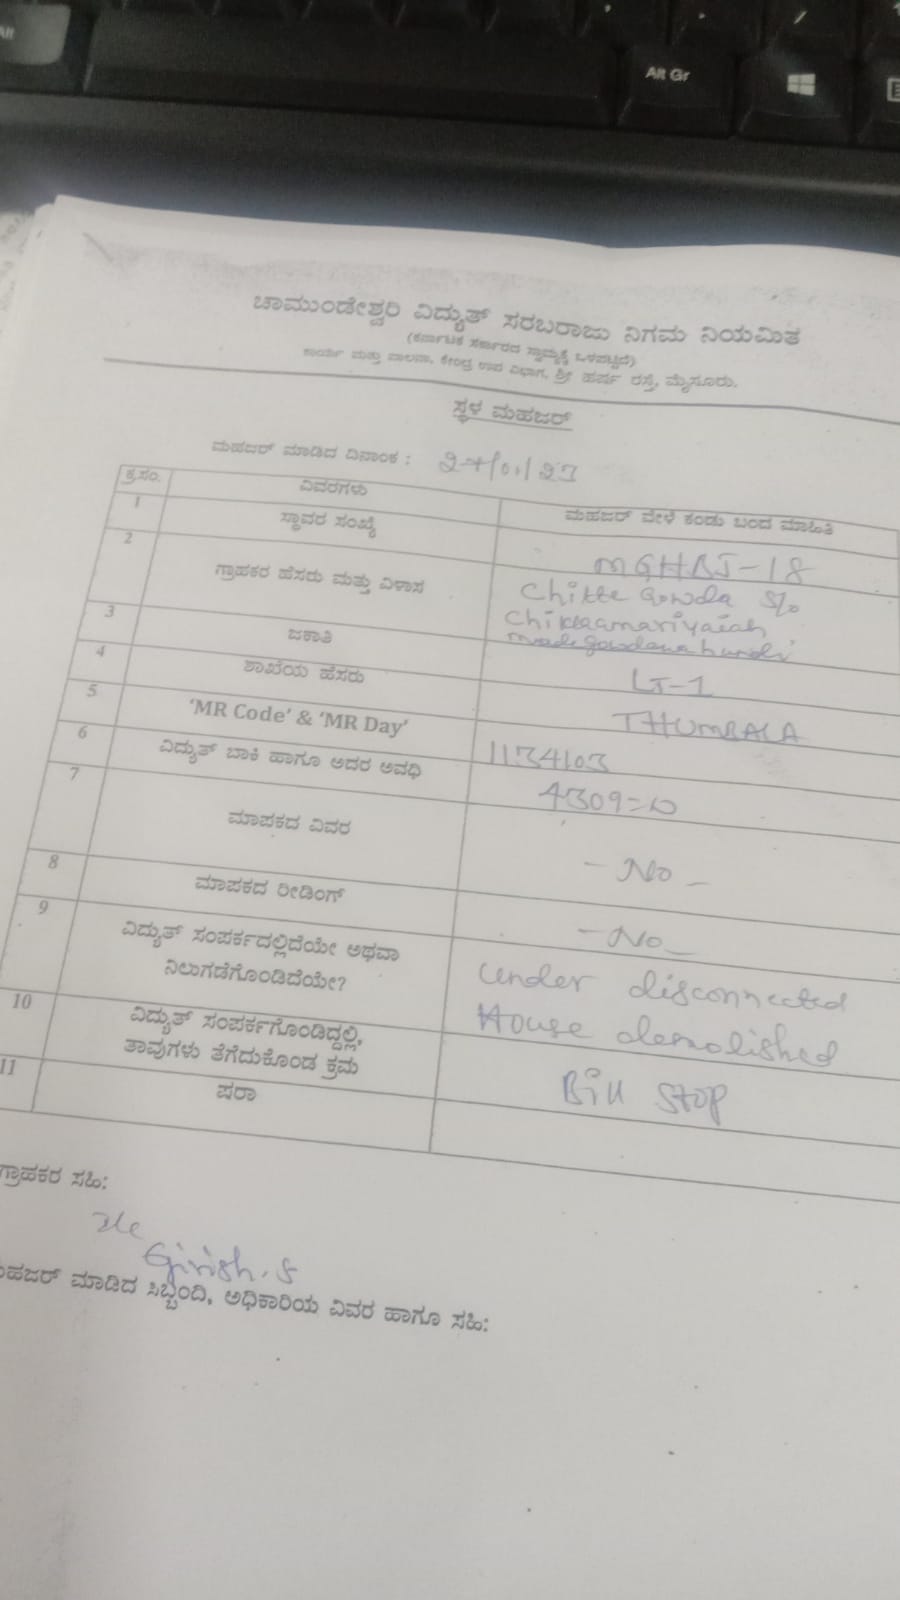 Alt
Alt Gr
ಚಾಮುಂಡೇಶ್ವರಿ ವಿದ್ಯುತ್ ಸರಬರಾಜು ನಿಗಮ ನಿಯಮಿತ
(ಕರ್ನಾಟಕ ಸರ್ಕಾರದ ಸ್ವಾಮ್ಯಕ್ಕೆ ಒಳಪಟ್ಟಿದೆ)
ಕಾರ್ಯ ಮತ್ತು ಪಾಲನಾ, ಕೇಂದ್ರ ಉಪ ವಿಭಾಗ, ಶ್ರೀ ಹರ್ಷ ರಸ್ತೆ, ಮೈಸೂರು.
ಸ್ಥಳ ಮಹಜರ್
ಮಹಜರ್ ಮಾಡಿದ ದಿನಾಂಕ : 27/01/23
ಕ್ರ.ಸಂ. ವಿವರಗಳು ಮಹಜರ್ ವೇಳೆ ಕಂಡು ಬಂದ ಮಾಹಿತಿ
1 ಸ್ಥಾವರ ಸಂಖ್ಯೆ MGHBJ-18
2 ಗ್ರಾಹಕರ ಹೆಸರು ಮತ್ತು ವಿಳಾಸ Chikke Gowda S/o
Chikkamariyaiah
madegowdana hundi
3 ಜಕಾತಿ LT-1
4 ಶಾಖೆಯ ಹೆಸರು THUMBALA
5 'MR Code' & 'MR Day' 1134103
6 ವಿದ್ಯುತ್ ಬಾಕಿ ಹಾಗೂ ಅದರ ಅವಧಿ 4309=00
7 ಮಾಪಕದ ವಿವರ - No -
8 ಮಾಪಕದ ರೀಡಿಂಗ್ - No -
9 ವಿದ್ಯುತ್ ಸಂಪರ್ಕದಲ್ಲಿದೆಯೇ ಅಥವಾ under disconnected
ನಿಲುಗಡೆಗೊಂಡಿದೆಯೇ? House demolished
10 ವಿದ್ಯುತ್ ಸಂಪರ್ಕಗೊಂಡಿದ್ದಲ್ಲಿ, Bill stop
ತಾವುಗಳು ತೆಗೆದುಕೊಂಡ ಕ್ರಮ
11 ಷರಾ
ಗ್ರಾಹಕರ ಸಹಿ:
Girish. S
ಮಹಜರ್ ಮಾಡಿದ ಸಿಬ್ಬಂದಿ, ಅಧಿಕಾರಿಯ ವಿವರ ಹಾಗೂ ಸಹಿ: